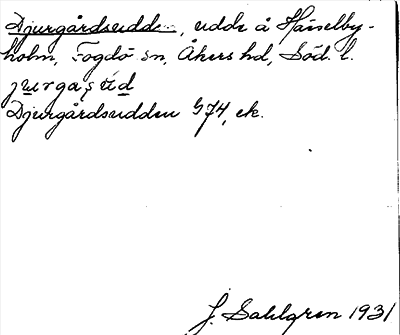 Djurgårdsudden, udde å Hässelby-
holm, Fogdö sn, Åkers hd, Söd. l.
Djurgårdsudden G74, ek.
J. Sahlgren 1931